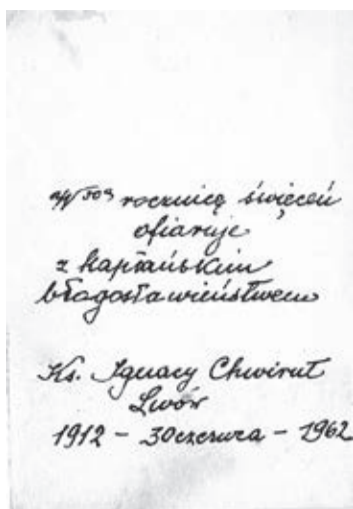 w 50ą rocznicę święceń
ofiaruje
z kapłańskim
błogosławieństwem
Ks. Ignacy Chwirut
Lwów
1912 – 30 czerwca – 1962